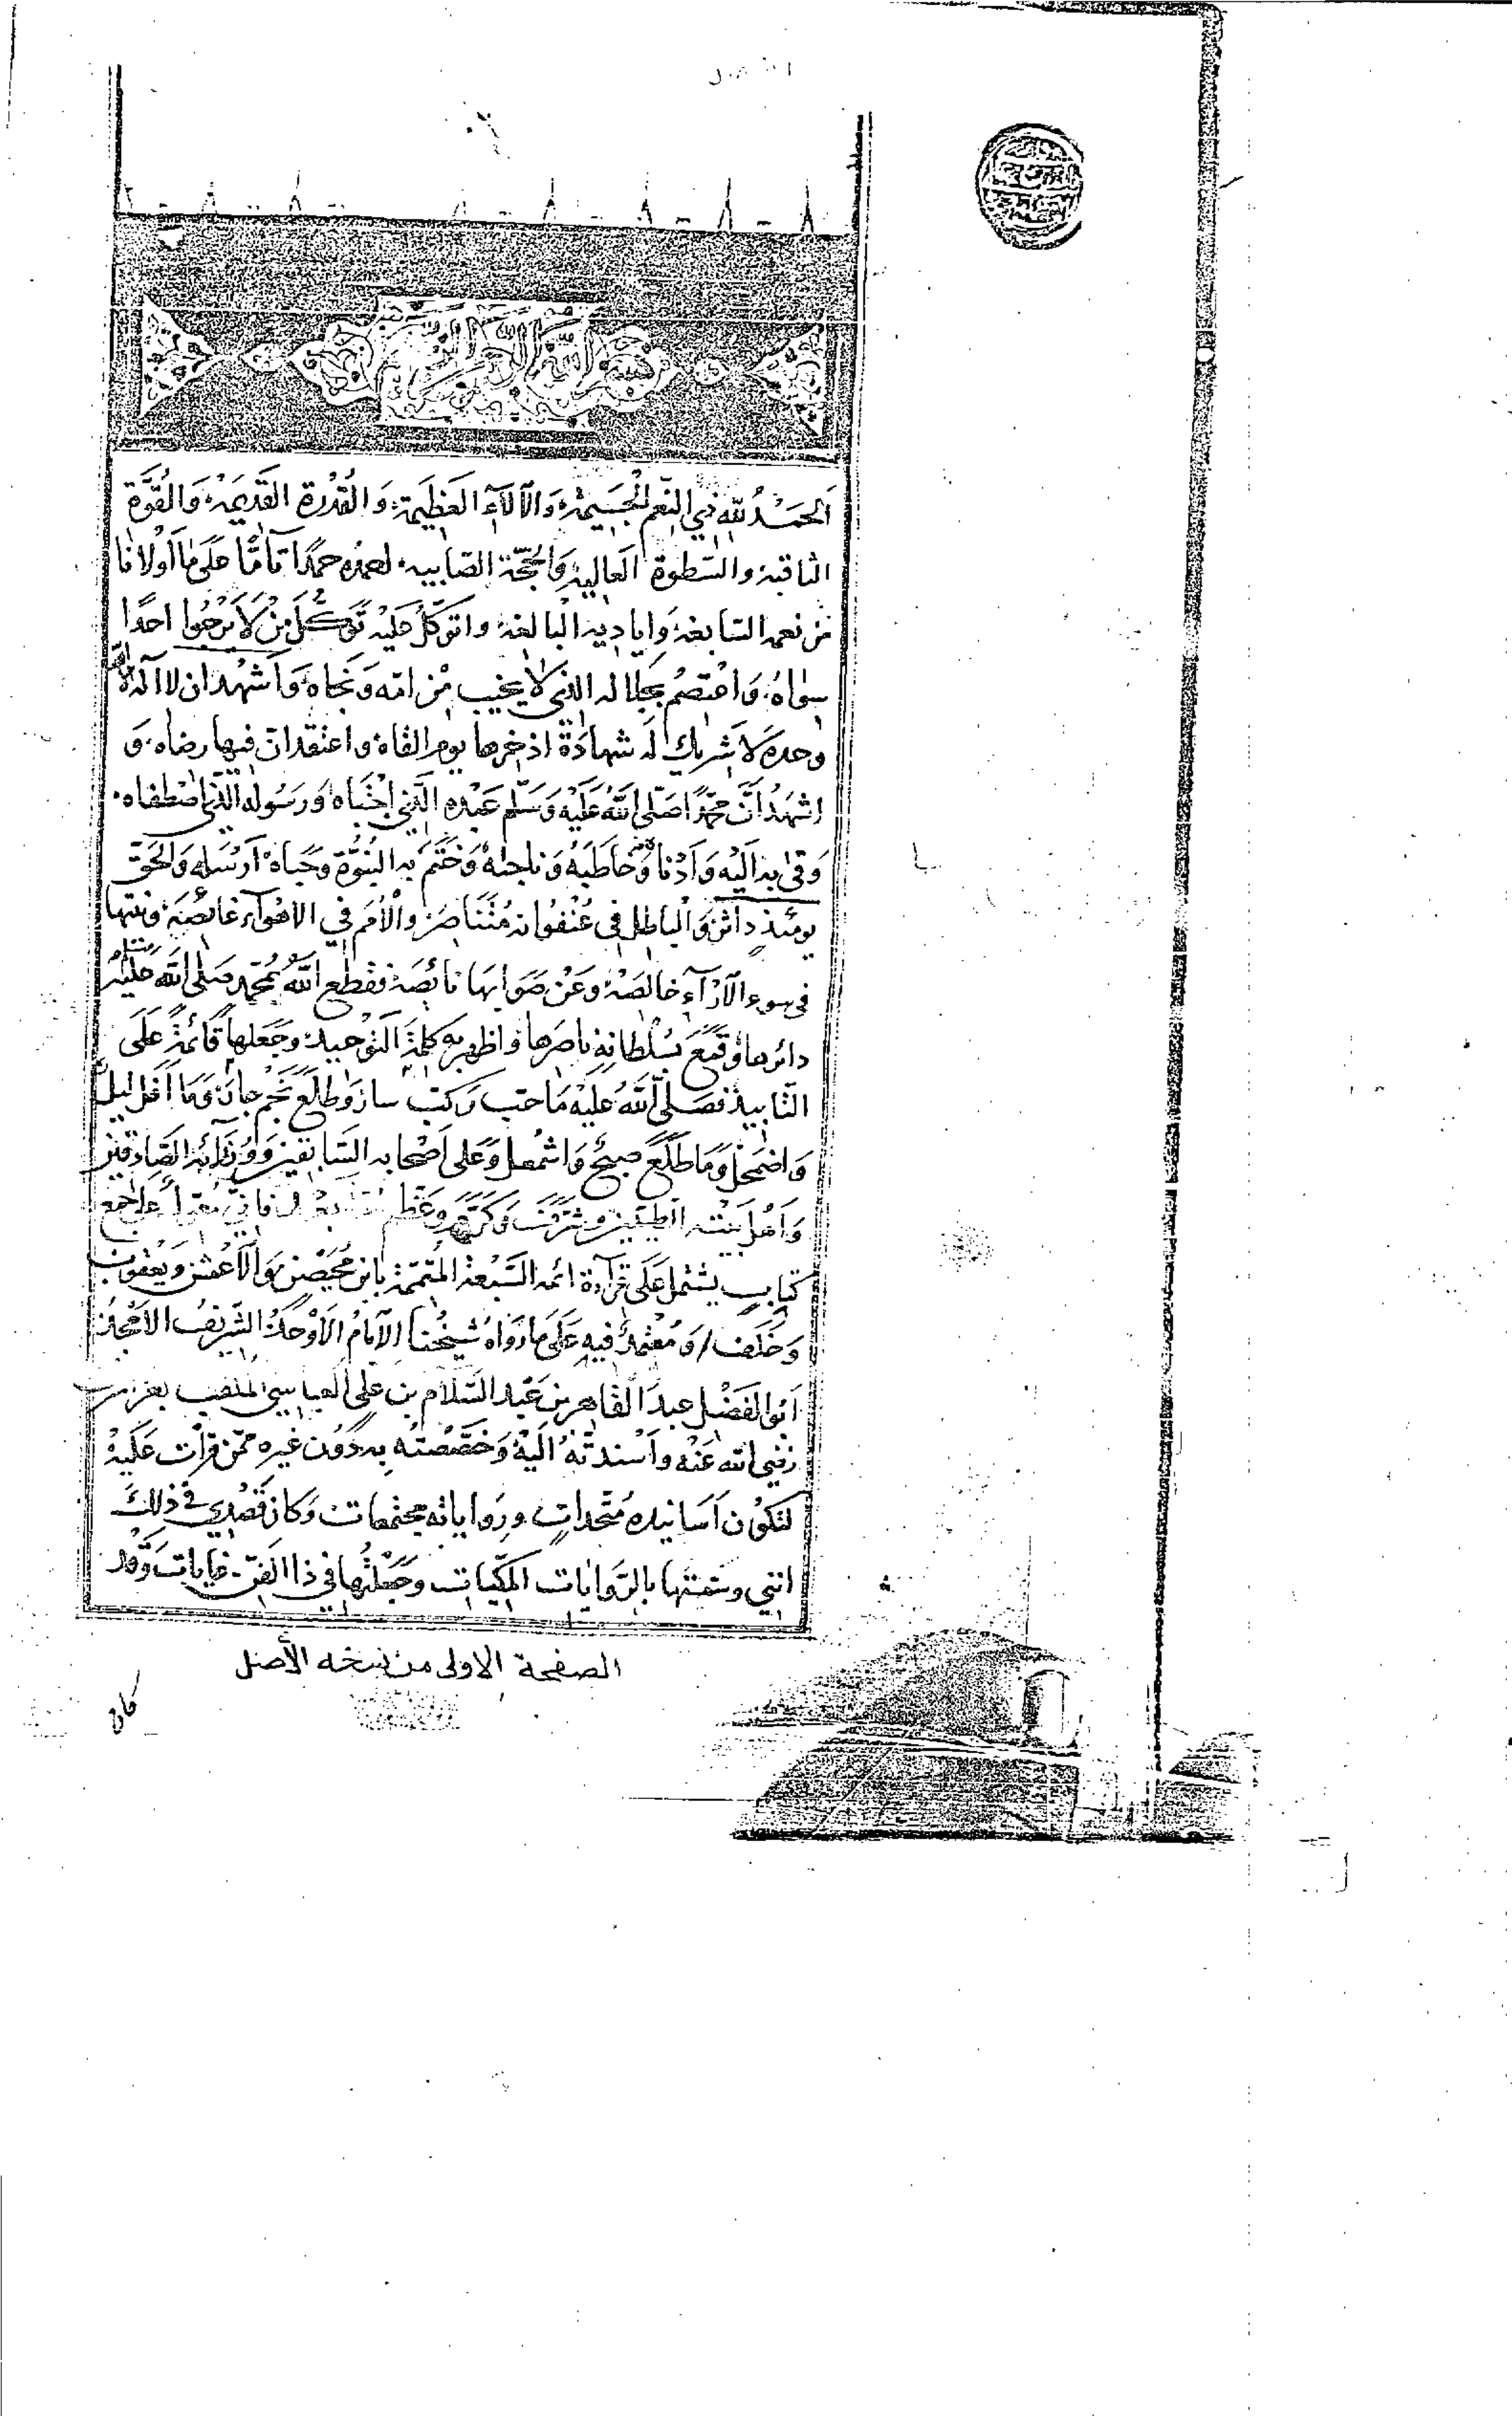 بسم الله الرحمن الرحيم
اَلحمَدُ للهِ ذِي النِّعَم الجَسيمَة وَالآلآءِ العَظِيمَة وَالقُدْرَة القَديمَة وَالقُوَّة
الثاقبة والسَّطوة العَالية وَالحُجّة الصَّايبه لحمده حمدًا تآمًّا عَلَى مَا أَوْلانا
من نعمه السَّابغة وَاياديه البالغة واتوَكّلُ عَلَيْه تَوَكُّلَ مِنْ لَا يَرْجُوا احدًا
سِوَاهُ وَاعْتصمُ بجلاله الذي لَا يخيب مْن امّه وَنجاه وَاَشْهدُ ان لا اله الا الله
وحدهَ لَا شريك لَه شهادَة اذخرها يوم القاه واعتقد ان فيها رضاه وَ
اشهَدُ اَنَّ محمَّدًا صَلّى اللهُ عَلَيْه وَسَلّم عَبْده الَّذي اجْتَباهُ وَرَسُوله الَّذي اصْطفاه
وَرقى به اَلَيْه وَاَدْناهُ وَخاطَبَهُ وَناجاهُ وَختَمَ به النُبُوَّة وحَباهْ اَرْسَله وَالحَقّ
يومئذٍ داثرٌ وَالباطل في عُنْفُوانه مُتَناصر وْالأُمَم في الاهْوآء غائصَة وفتنها
في سوء الآرْآءِ خالصَةْ وعَنْ صَوَابهَا نائصَة فقطع اللهُ بمُحَمّد صَلّى الله عَلَيْهِ وسلم
دائرها وَقَمَعَ بسُلْطانِه ناصَرها واظهر به كلمَةَ التوْحيد وجَعَلها قَائمَةً عَلَى
التّابيد فصَلّى اللهُ عَلَيْه مَا خبّ رَكبٌ سارَ وَطلَعَ نَجْم جارَ وَمَا افل لَيل
وَاضمَحَلَّ وَمَا طلَعَ صبحٌ وَاشْمعل وَعَلى اَصْحابه السَّابقين وَوُزَرآئه الصَّادقين
وَاَهْل بَيْته الطيّبين وشَرَّف وَكَرَّم وعَظم بَعْد فاني عَلى جَمع
كتاب يشتمل عَلَى قرآءة ائمه السَّبْعة المُتَمّمة بابن مُحَيْصن وَالْاَعْمش وَيَعْقوب
وَخَلَف وَمُعْتمِدٌ فيه عَلَى مَا رَوَاهُ شيخُنا الامَامُ الَاوْحَدُ الشَّريفُ الاَمْجَدُ
اَبُو الفَضْل عبدَ القاهر بن عَبْد السَّلام بن علي العباسي الملقب بعز
رضي الله عَنْه واَسْندتُهُ الَيْهْ وَخصَّصْتُه به دُون غيره ممّن قرأت عَلَيهْ
لتكُون اَسَانيده مُتّحدات ورَواياته مجتمعات وَكانَ قَصْدي في ذلكَ
انني وسمتها بالرّوايات المكيّات وجَعَلْتُها في ذا الفنّ غايات وَقد
كان
الصفحة الاولى من نسخه الأصل